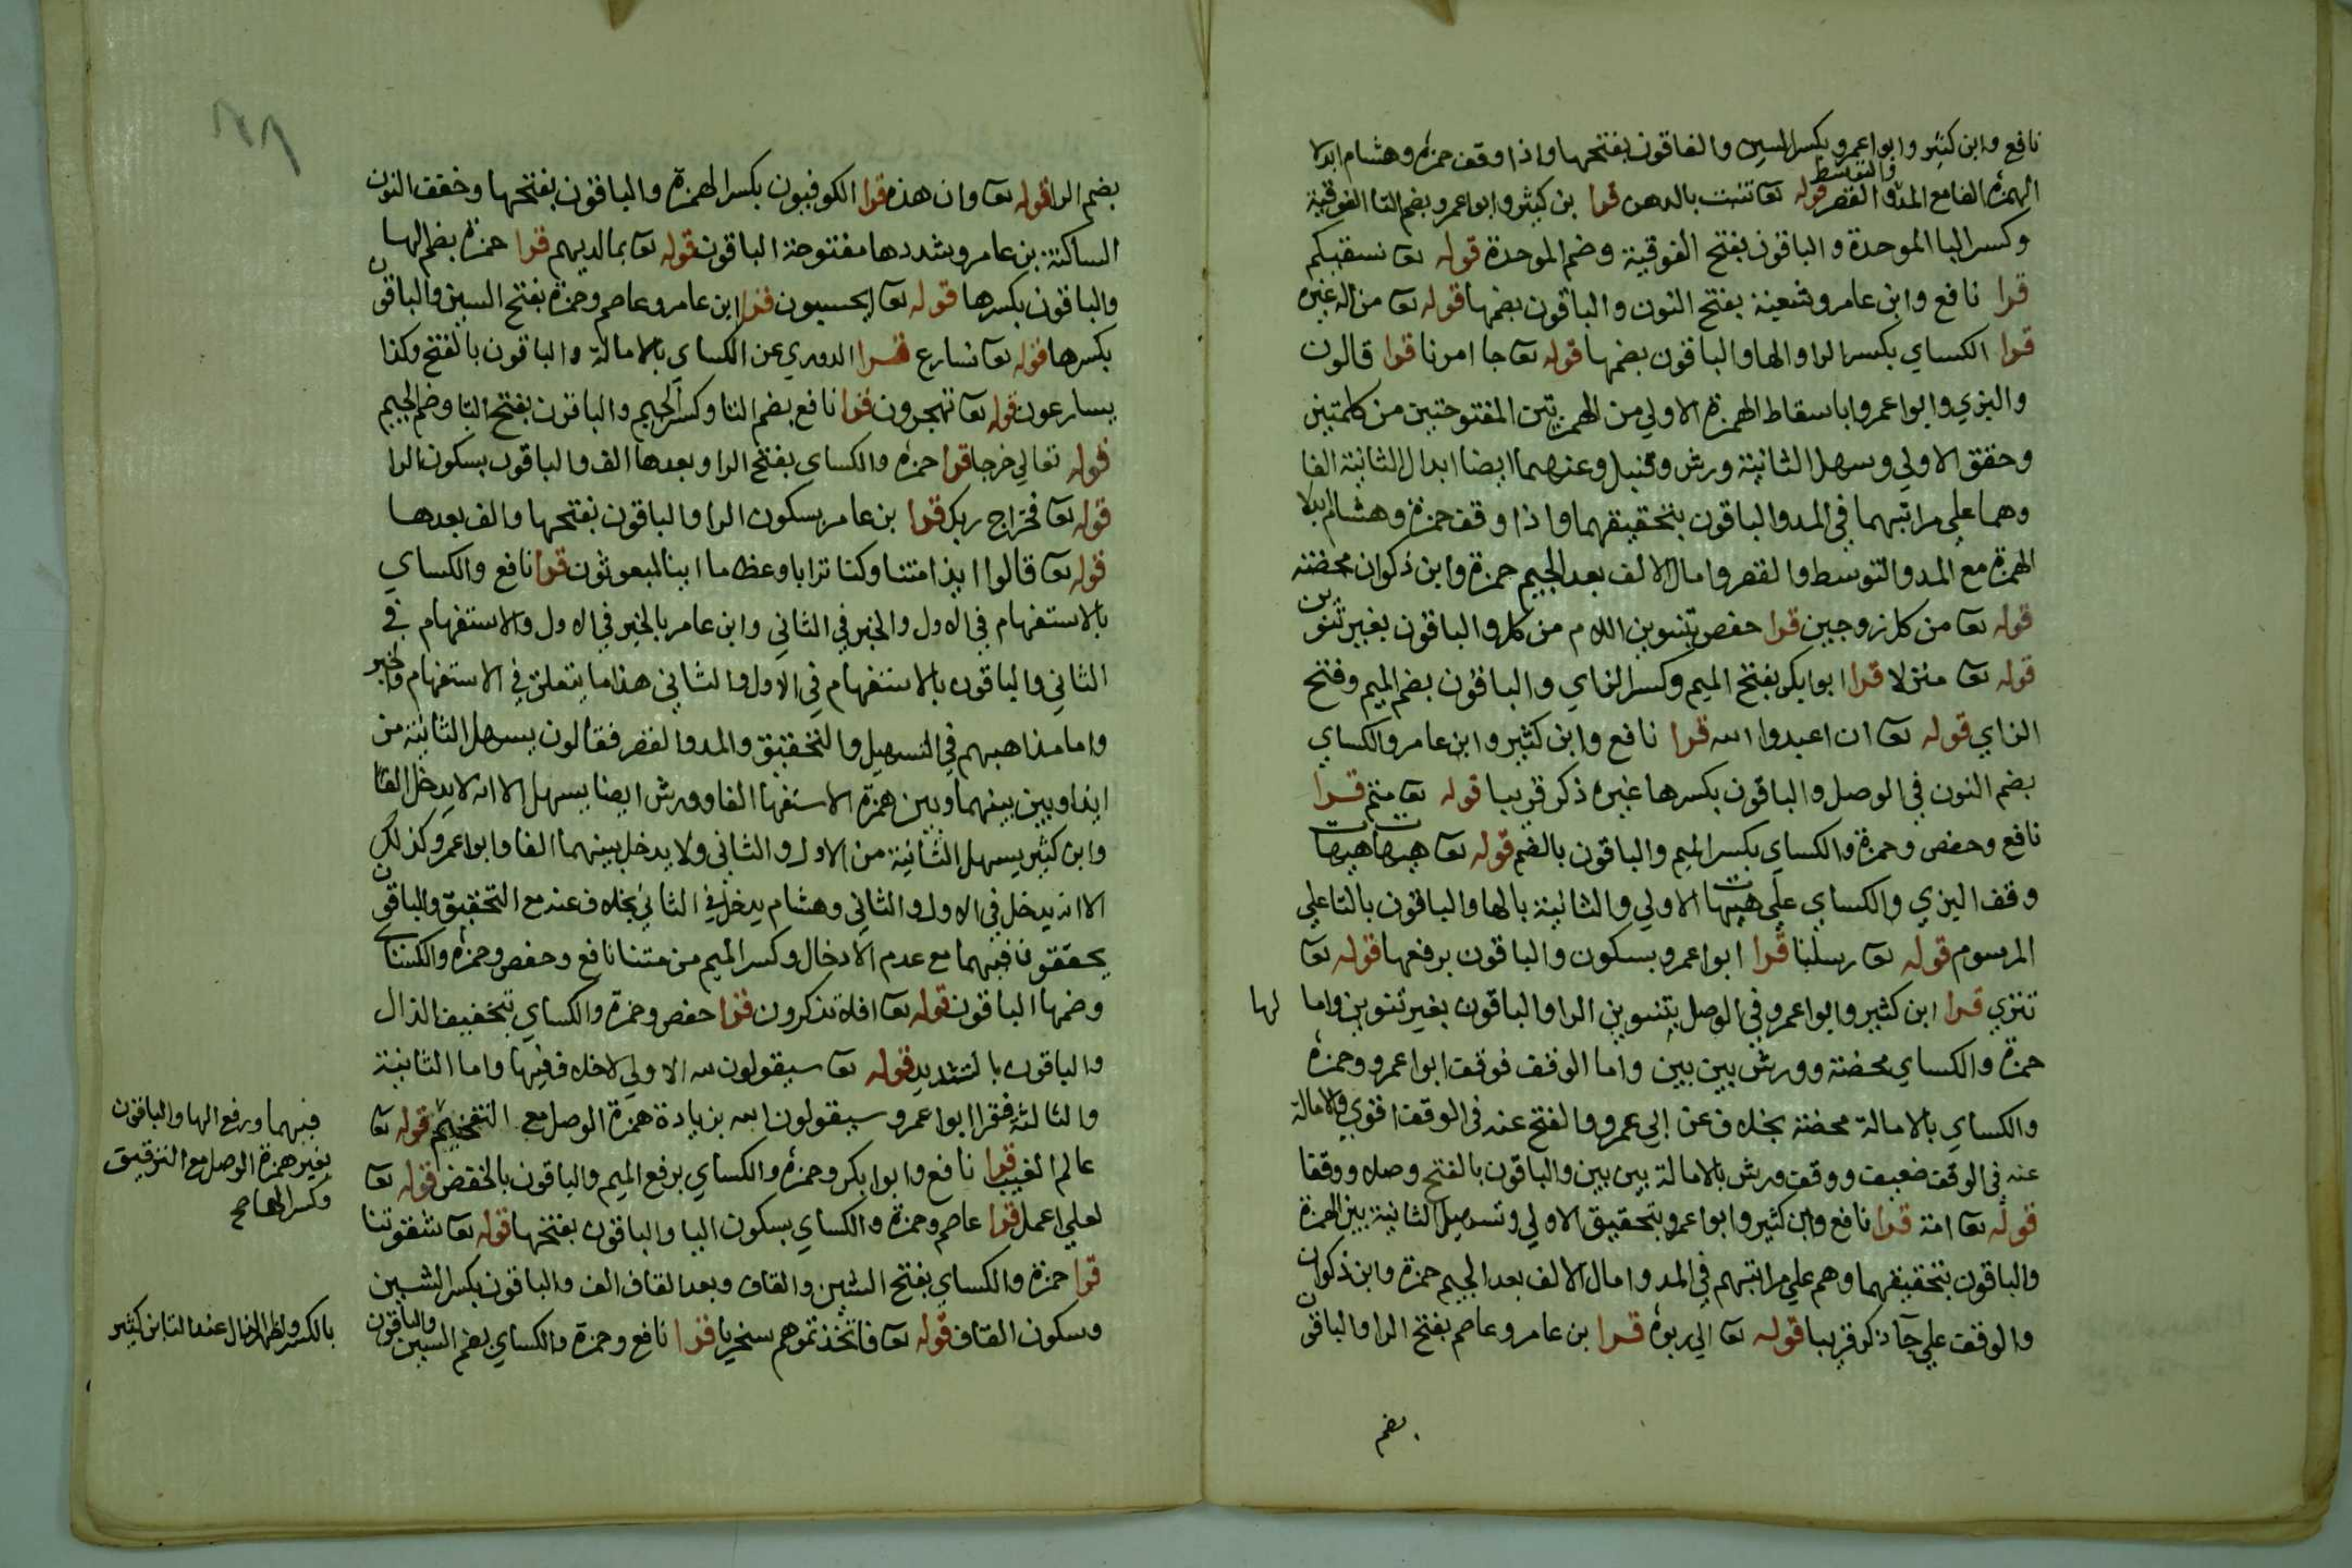 نافع وابن كثير وابوا عمرو بكسر السين والفاقون بفتحها واذا وقف حمزة وهشام ابدلا
والتوسط
الهمزة الفا مع المد والقصر قوله تعا تنبت بالدهن قرا بن كثير وابوا عمرو بضم التا الفوقية
وكسر البا الموحدة والباقون بفتح الفوقية وضم الموحدة قوله تعا نسقيكم
قرا نافع وابن عامر وشعبة بفتح النون والباقون بضمها قوله تعا من اله غيره
قرا الكساي بكسر الرا والها والباقون بضمها قوله تعا جا امرنا قرا قالون
والبزي وابوا عمرو اباسقاط الهمزة الاولي من الهمزتين المفتوحتين من كلمتين
وحقق الاولي وسهل الثانية ورش وقنبل وعنهما ايضا ابدال الثانية الفا
وهما علي مراتبهما في المد والباقون بتحقيقهما واذا وقف حمزة وهشام ابدلا
الهمزة مع المد والتوسط والقصر وامال الالف بعد الجيم حمزة وابن ذكوان محضة
قوله تعا من كل زوجين قرا حفص بتنوين اللام من كل والباقون بغير تنوين
قوله تعا منزلا قرا ابوا بكر بفتح الميم وكسر الزاي والباقون بضم الميم وفتح
الزاي قوله تعا ان اعبدوا الله قرا نافع وابن كثير وابن عامر والكساي
بضم النون في الوصل والباقون بكسرها غيره ذكر قريبا قوله تعا متم قرا
نافع وحفص وحمزة والكساي بكسر الميم والباقون بالضم قوله تعا هيهات هيهات
وقف البزي والكساي علي هيهات الاولي والثانية بالها والباقون بالتا علي
المرسوم قوله تعا رسلنا قرا ابوا عمرو بسكون والباقون برفعها قوله تعا
تترى قرا ابن كثير وابوا عمرو في الوصل بتنوين الرا والباقون بغير تنوين واما لها
حمزة والكساي محضة وورش بين بين واما الوقف فوقف ابوا عمرو وحمزة
والكساي بالامالة محضة بخلاف عن ابي عمرو والفتح عنه في الوقف اقوي والامالة
عنه في الوقف ضعيف ووقف ورش بالامالة بين بين والباقون بالفتح وصلا ووقفا
قوله تعا امة قرا نافع وابن كثير وابوا عمرو بتحقيق الاولي وتسهيل الثانية بين الهمزة
والباقون بتحقيقهما وهم علي مراتبهم في المد وامال الالف بعد الجيم حمزة وابن ذكوان
والوقف علي جآ ذكر قريبا قوله تعا الي ربوة قرا بن عامر وعاصم بفتح الرا والباقون
بضم
بضم الرا قوله تعا وان هذه قرا الكوفيون بكسر الهمزة والباقون بفتحها وخفف النون
الساكنة بن عامر وشددها مفتوحة الباقون قوله تعا بمالديهم قرا حمزة بضم الها
والباقون بكسرها قوله تعا ايحسبون قرا ابن عامر وعاصم وحمزة بفتح السين والباقون
بكسرها قوله تعا نسارع قرا الدوري عن الكساي بالامالة والباقون بالفتح وكذا
يسارعون قوله تعا تهجرون قرا نافع بضم التا وكسر الجيم والباقون بفتح التا وضم الجيم
قوله تعالي خرجا قرا حمزة والكساي بفتح الرا وبعدها الف والباقون بسكون الرا
قوله تعا فخراج ربك قرا بن عامر بسكون الرا والباقون بفتحها والف بعدها
قوله تعا قالوا ايذا متنا وكنا ترابا وعظاما اينا لمبعوثون قرا نافع والكساي
بالاستفهام في الاول والخبر في الثاني وابن عامر بالخبر في الاول والاستفهام في
الثاني والباقون بالاستفهام في الاول والثاني هذا ما يتعلق في الاستفهام والخبر
واما مذاهبهم في التسهيل والتحقيق والمد والقصر فقالون يسهل الثانية من
ايذا وبين بينهما وبين همزة الاستفها الفا وورش ايضا يسهل الا انه لا يدخل الفا
وابن كثير يسهل الثانية من الاول والثاني ولا يدخل بينهما الفا وابوا عمرو كذلك
الا انه يدخل في الاول والثاني وهشام يدخل في الثاني بخلاف عنه مع التحقيق والباقون
يحققون فيهما مع عدم الادخال وكسر الميم من متنا نافع وحفص وحمزة والكساي
وضمها الباقون قوله تعا افلا تذكرون قرا حفص وحمزة والكساي بتخفيف الذال
والباقون بالتشديد قوله تعا سيقولون لله الاولي لا خلاف فيها واما الثانية
والثالثة فقرا ابوا عمرو سيقولون الله بزيادة همزة الوصل مع التفخيم قوله تعا
عالم الغيب قرا نافع وابوا بكر وحمزة والكساي برفع الميم والباقون بالخفض قوله تعا
لعلي اعمل قرا عاصم وحمزة والكساي بسكون اليا والباقون بفتحها قوله تعا شقوتنا
قرا حمزة والكساي بفتح الشين والقاف وبعد القاف الف والباقون بكسر الشين
وسكون القاف قوله تعا فاتخذتموهم سخريا قرا نافع وحمزة والكساي بضم السين والباقون
فيهما ورفع الها والباقون
بغير همزة الوصل مع الترقيق
وكسر الها صح
بالكسر واظهر الذال عند التا ابن كثير